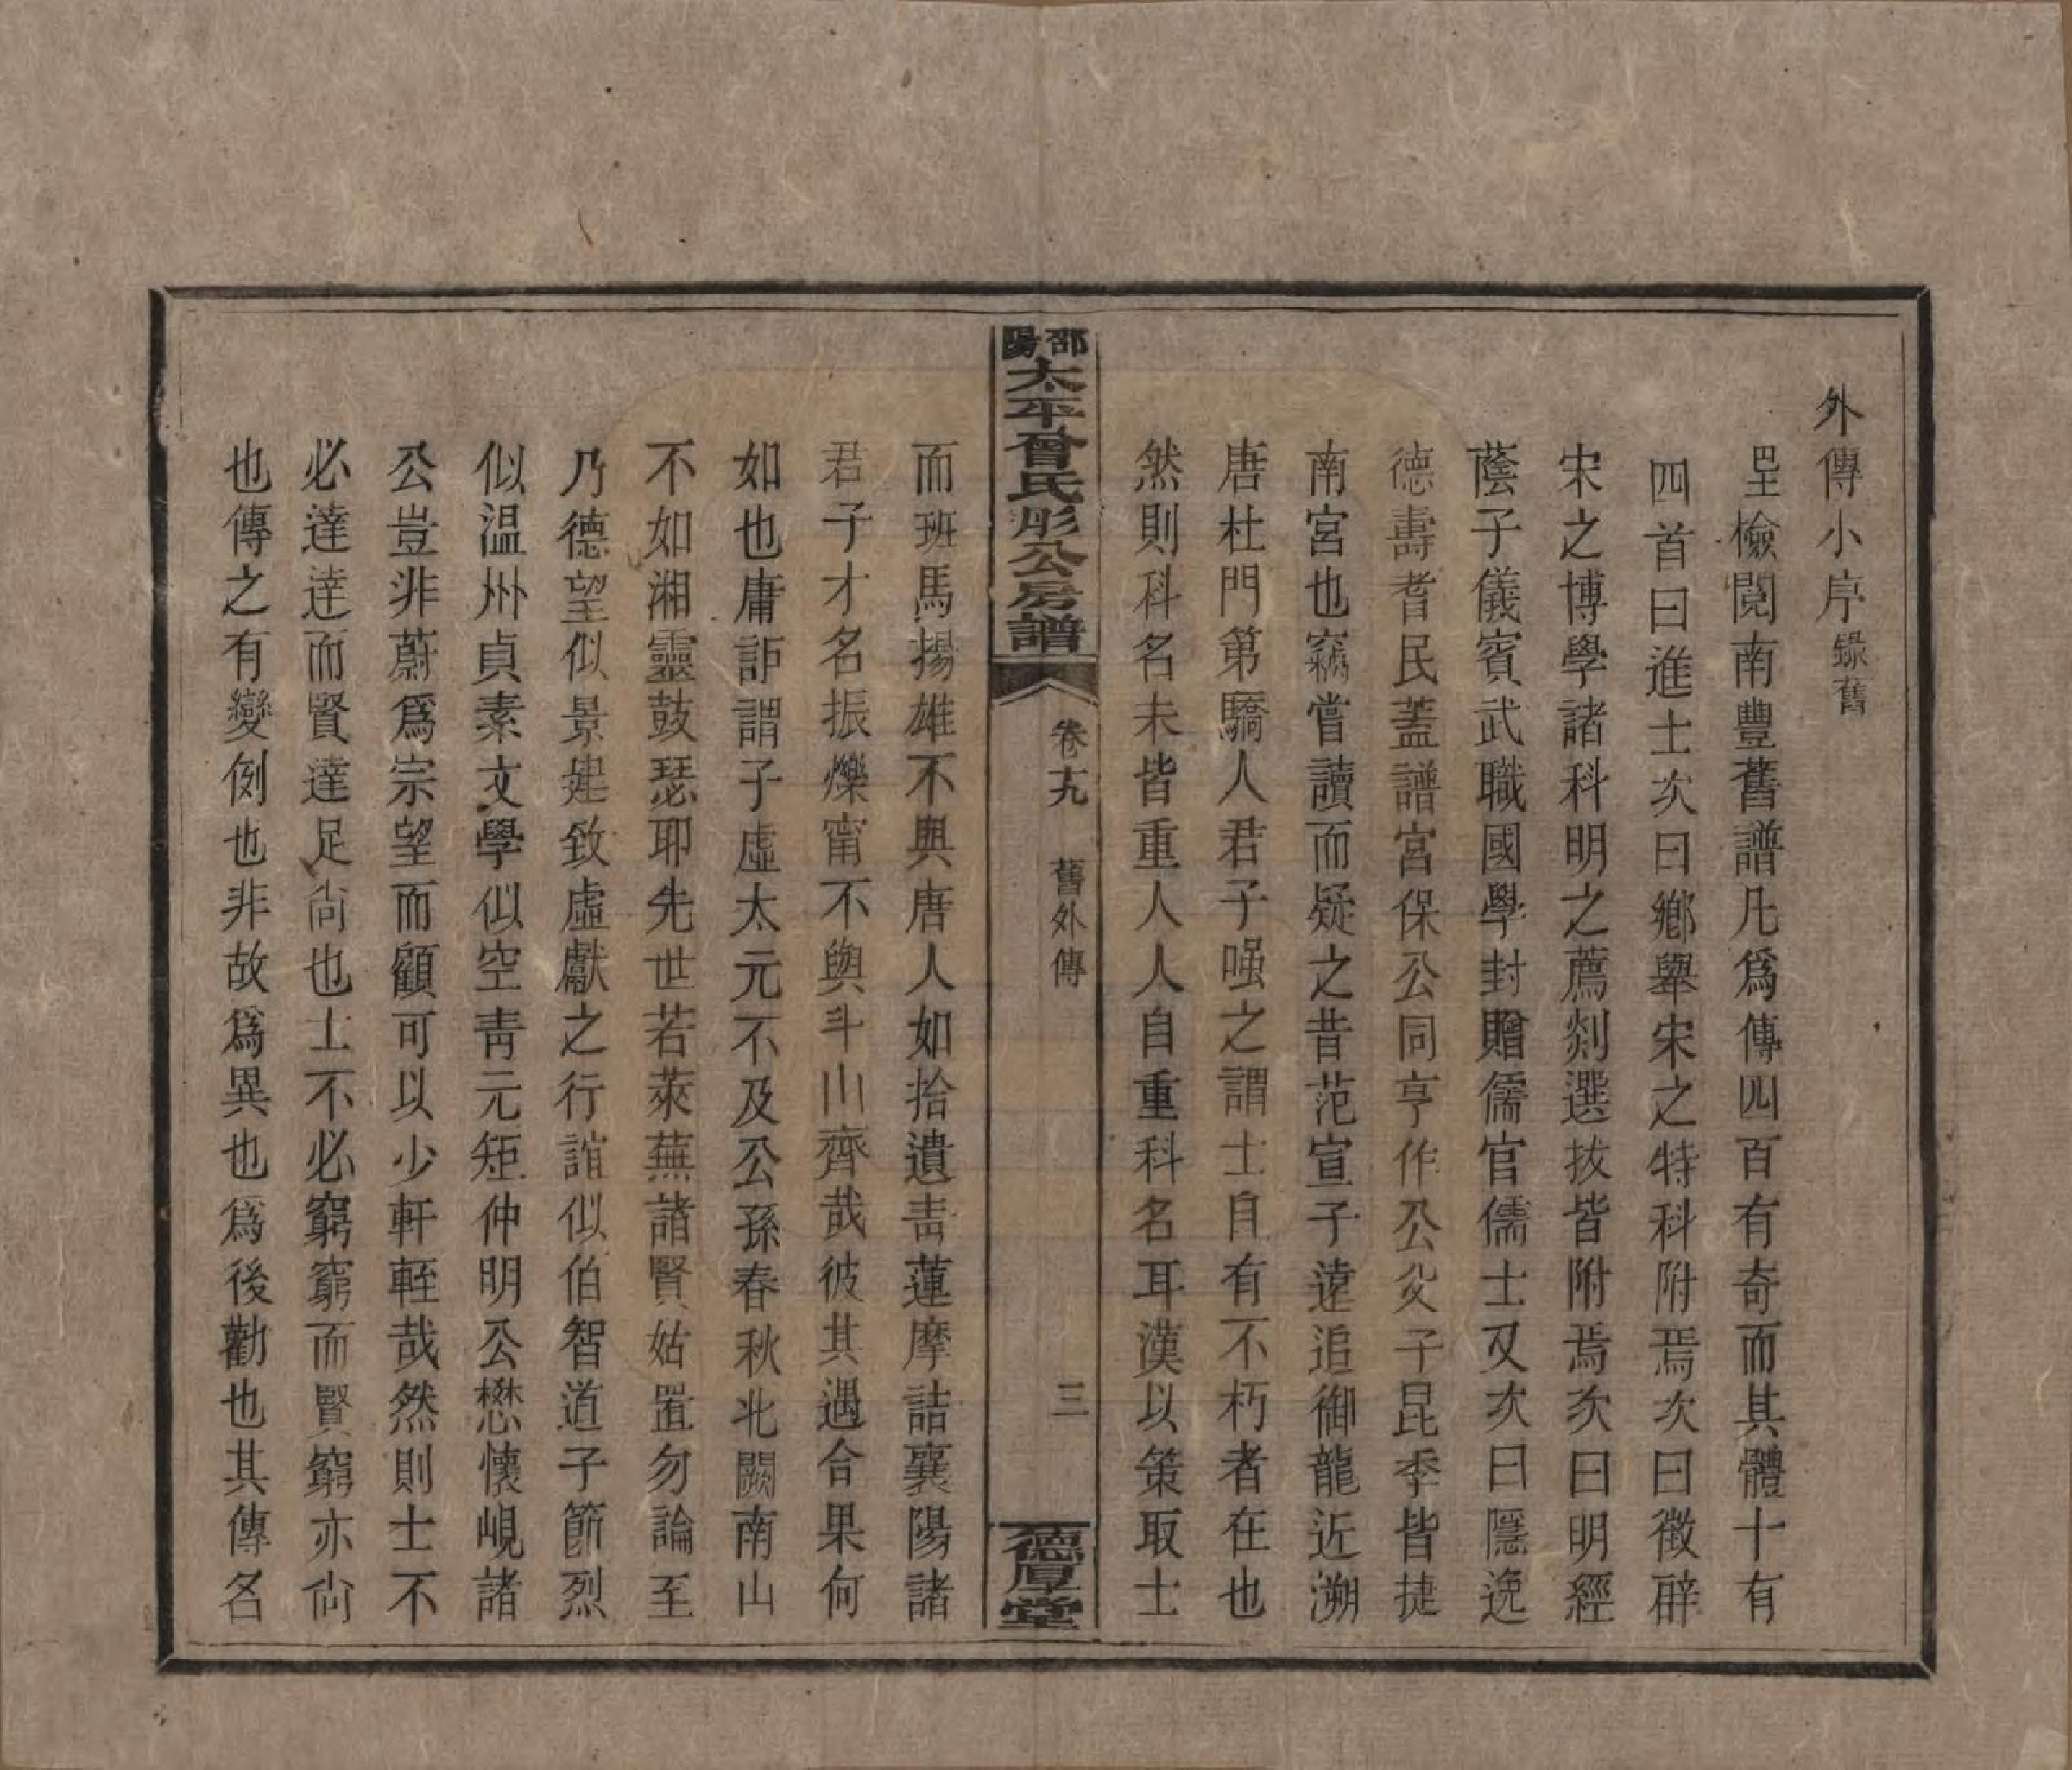 外傳小序錄舊
墍檢閱南豐舊譜凡爲傳四百有奇而其體十有
四首曰進士次曰鄉舉宋之特科附焉次曰徵辟
宋之博學諸科明之薦剡選拔皆附焉次曰明經
蔭子儀賓武職國學封贈儒官儒士又次曰隱逸
德壽耆民蓋譜宮保公同亨作公父子昆季皆捷
南宮也竊嘗讀而疑之昔范宣子遠追御龍近溯
唐杜門第驕人君子嗤之謂士自有不朽者在也
然則科名未皆重人人自重科名耳漢以策取士
邵陽太平曾氏彤公房譜
卷十九
舊外傳
三
德厚堂
而班馬揚雄不與唐人如拾遺青蓮摩詰襄陽諸
君子才名振爍甯不與斗山齊哉彼其遇合果何
如也庸詎謂子虛太元不及公孫春秋北闕南山
不如湘靈鼓瑟耶先世若萊蕪諸賢姑置勿論至
乃德望似景建致虛獻之行誼似伯智道子節烈
似温州貞素文學似空青元矩仲明公懋懷峴諸
公豈非蔚爲宗望而顧可以少軒輊哉然則士不
必達達而賢達足尙也士不必窮窮而賢窮亦尙
也傳之有變例也非故爲異也爲後勸也其傳名